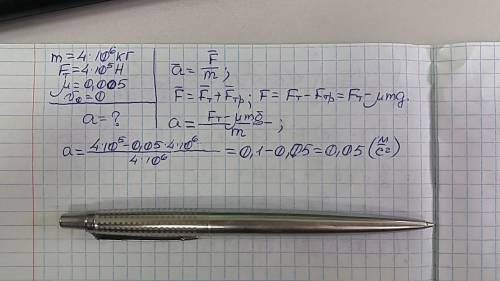 m = 4·10⁶ кг
F = 4·10⁵ Н
μ = 0,005
v₀ = 0
a = ?
a̅ = F̅/m ;
F̅ = F̅т + F̅тр ; F = Fт − Fтр = Fт − μmg.
a = (Fт − μmg)/m ;
a = (4·10⁵ − 0,05·4·10⁶)/(4·10⁶) = 0,1 − 0,05 = 0,05 (м/с²)